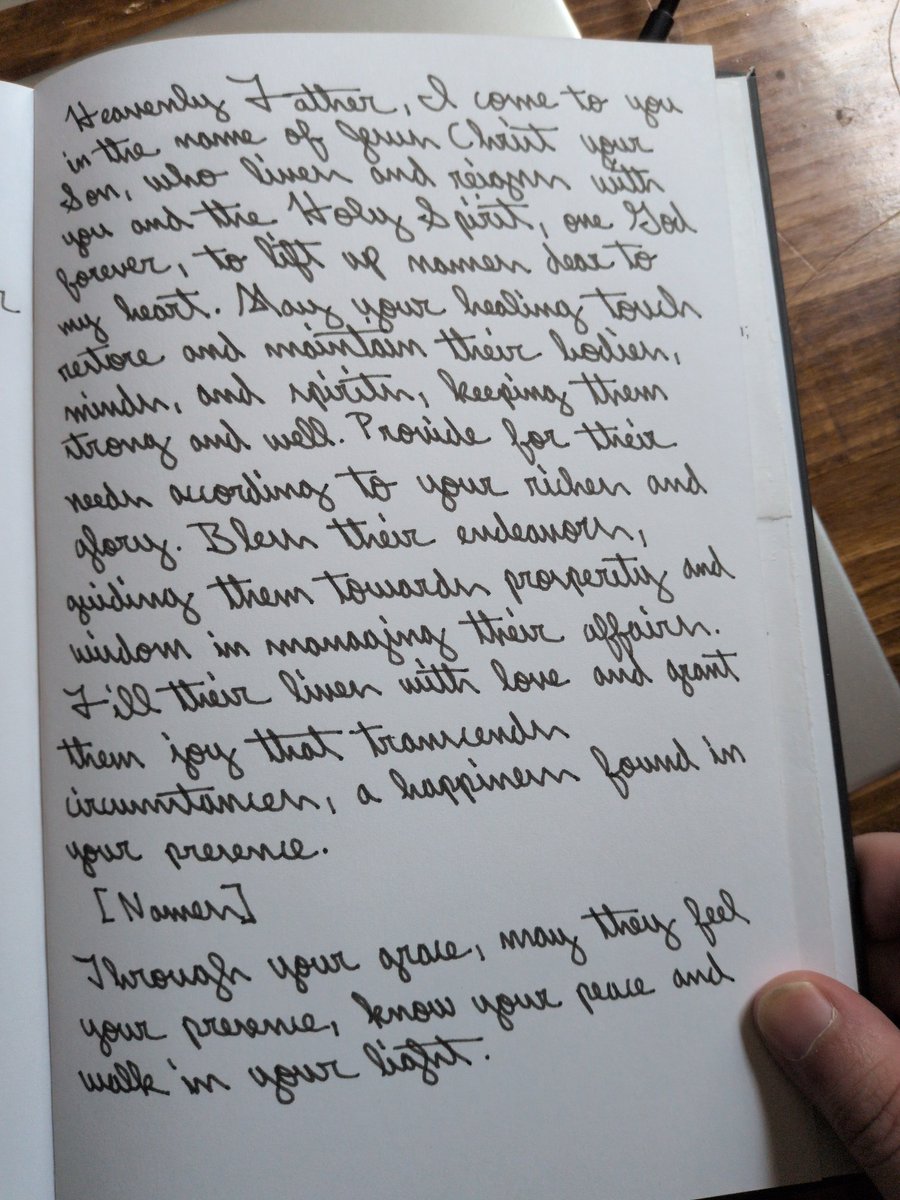 Heavenly Father, I come to you
in the name of Jesus Christ your
Son, who lives and reigns with
you and the Holy Spirit, one God
forever, to lift up names dear to
my heart. May your healing touch
restore and maintain their bodies,
minds, and spirits, keeping them
strong and well. Provide for their
needs according to your riches and
glory. Bless their endeavors,
guiding them towards prosperity and
wisdom in managing their affairs.
Fill their lives with love and grant
them joy that transcends
circumstances, a happiness found in
your presence.
[Names]
Through your grace, may they feel
your presence, know your peace and
walk in your light.